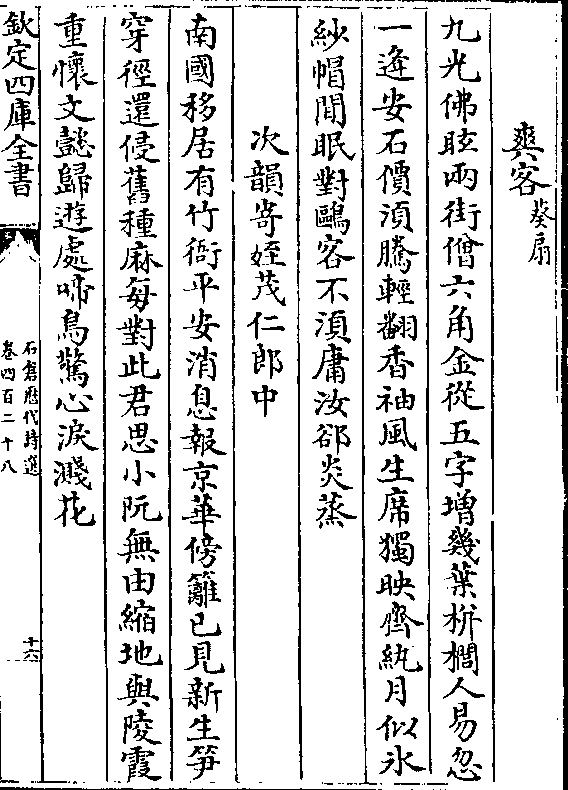 爽客葵扇
九光佛眩兩街僧六角金從五字增幾葉栟櫚人易忽
一逢安石價須騰輕翻香袖風生席獨映齊紈月似氷
紗帽閒眠對鷗客不須庸汝郤炎蒸
次韻寄姪茂仁郎中
南國移居有竹衙平安消息報京華傍籬已見新生笋
穿徑還侵舊種麻每對此君思小阮無由縮地與陵霞
重懷文懿歸遊處啼鳥驚心淚濺花
欽定四庫全書
石倉歷代詩選
卷四百二十八
十六